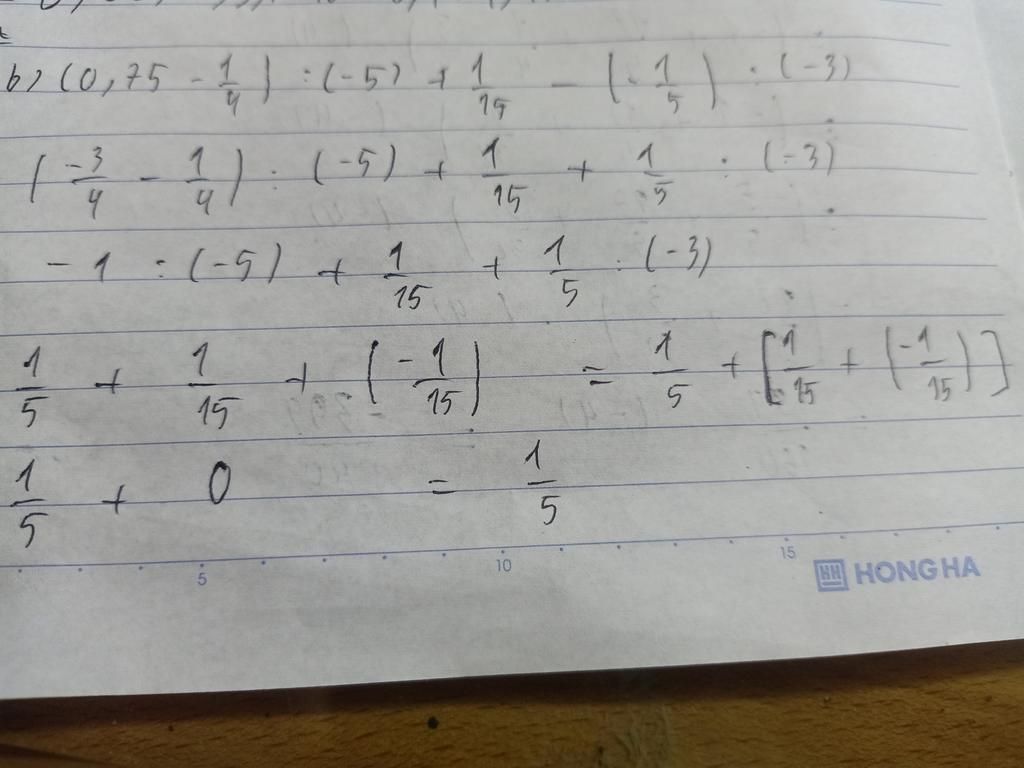 b) (0,75 - 1/4) : (-5) + 1/15 - (-1/5) : (-3)
(-3/4 - 1/4) : (-5) + 1/15 + 1/5 : (-3)
- 1 : (-5) + 1/15 + 1/5 : (-3)
1/5 + 1/15 + (-1/15) = 1/5 + [1/15 + (-1/15)]
1/5 + 0 = 1/5
5 10 15
HH HONG HA